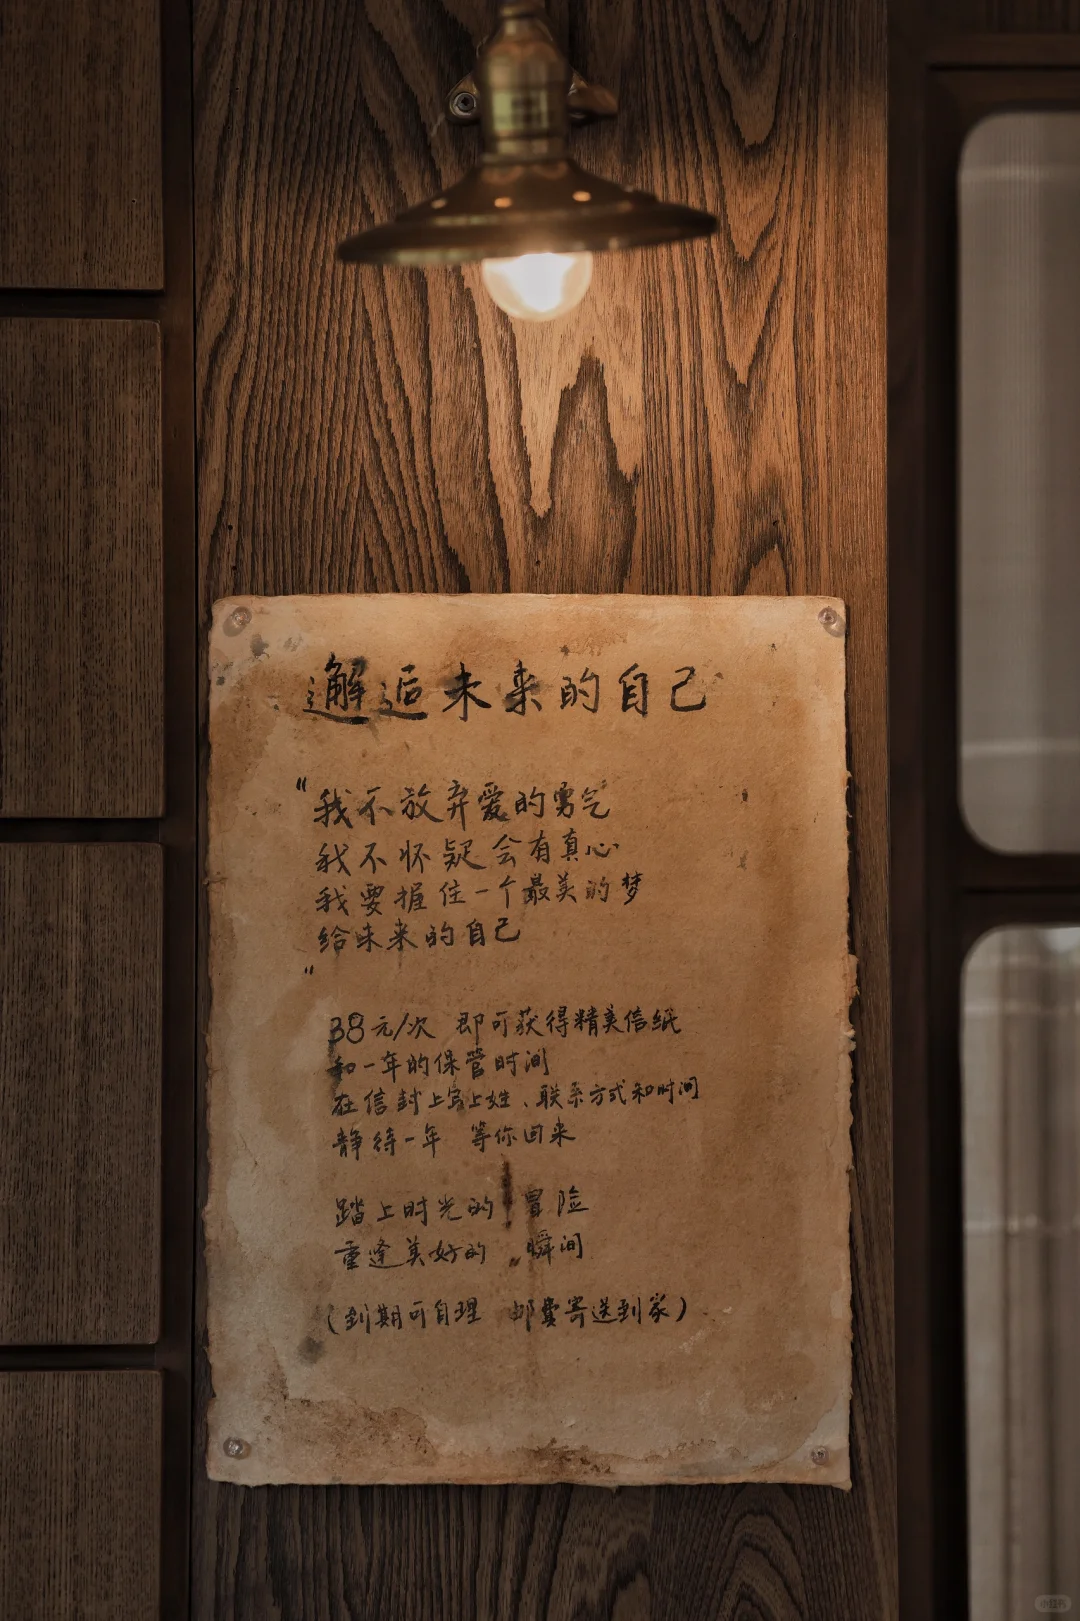 邂逅未来的自己
"我不放弃爱的勇气
我不怀疑会有真心
我要握住一个最美的梦
给未来的自己
"
38元/次 即可获得精美信纸
和一年的保管时间
在信封上写上姓、联系方式和时间
静待一年 等你回来
踏上时光的 冒险
重逢美好的 瞬间
(到期可自理 邮费寄送到家)
小红书